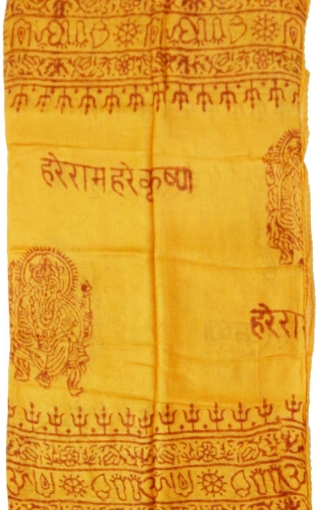 हरेरामहरेकृष्ण
हरेरा